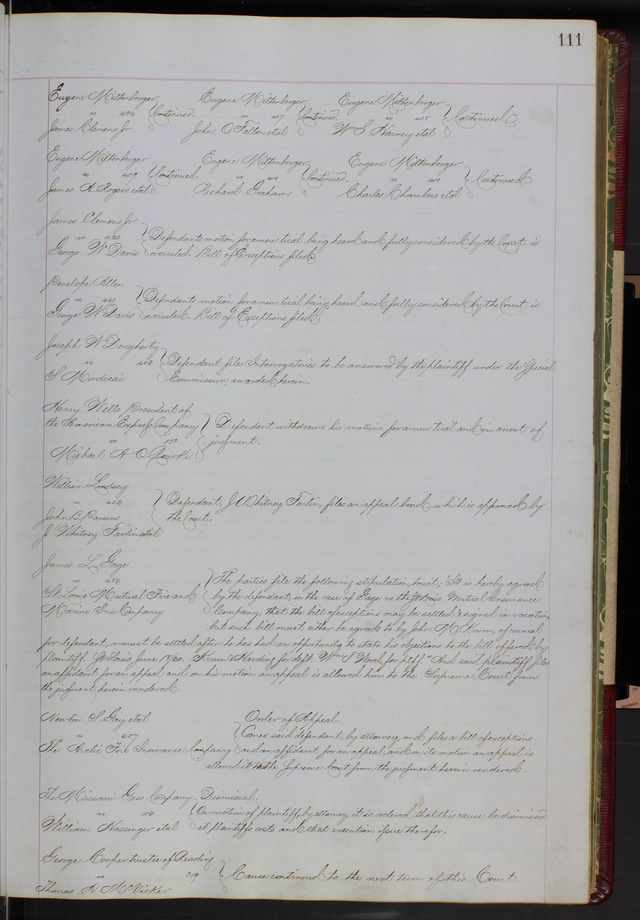 111
Eugene Miltenberger Eugene Miltenberger Eugene Miltenberger
vs 406 Continued vs 407 Continued vs 408 Continued
James Clemens Jr John O Fallon etal W S Harney etal
Eugene Miltenberger Eugene Miltenberger Eugene Miltenberger
vs 409 Continued vs 410 Continued vs 411 Continued
James A Rogers etal Richard Graham Charles Chambers etal
James Clemens Jr
vs Defendants motion for a new trial being heard and fully considered by the Court is
George W Davis overruled. Bill of Exceptions filed
Penelope Allen
vs Defendants motion for a new trial being heard and fully considered by the Court is
George W Davis overruled. Bill of Exceptions filed
Joseph W Dougherty
vs Defendant files Interrogatories to be answered by the plaintiff under the Special
S Mordecai Commission awarded herein.
Henry Wells President of
the American Express Company Defendant withdraws his motions for a new trial and in arrest of
vs judgment.
Michael A O Rourke
William Lindsay
vs Defendant, J Whitney Farlin, files an appeal bond, which is approved by
John B Parsons the Court.
J Whitney Farlin etal
James L Gage
vs The parties file the following stipulation, to wit; "It is hereby agreed
St Louis Mutual Fire and by the defendant, in the case of Gage vs the St Louis Mutual Insurance
Marine Ins Company Company, that the bill of exceptions may be settled & signed in vacation,
but such bill must either be agreed to by John M Krum, of counsel
for defendant, or must be settled after he has had an opportunity to state his objections to the bill offered by
plaintiff. St Louis June Krum & Harding for deft, Wm S for pltff." And said plaintiff files
an affidavit for an appeal and on his motion an appeal is allowed him to the Supreme Court from
the judgment herein rendered.
Newton S Gay etal Order of Appeal.
vs 457 Comes said defendant, by attorney, and files a bill of exceptions
The Arctic Fire Insurance Company and an affidavit for an appeal, and on its motion an appeal is
allowed it to the Supreme Court from the judgment herein rendered.
The Missouri Gass Company Dismissal.
vs 114 On motion of plaintiff, by attorney, it is ordered that this cause be dismissed
William Hassinger etal at plaintiffs costs and that execution issue therefor.
George Cooper trustee of Reading
vs 219 Cause continued to the next term of this Court
Thomas A McVicker